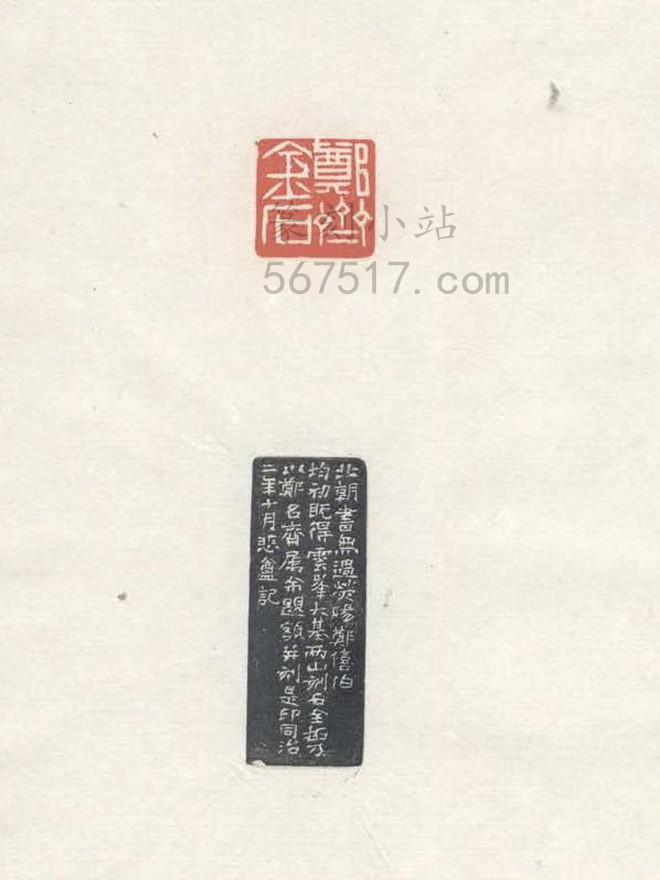 鄭齋
金石
篆刻小站
567517.com
北朝書無過滎陽鄭僖伯
均初既得雲峯大基兩山刻石全拓乃
以鄭名齋屬余題額并刻是印同治
二年十月悲盦記